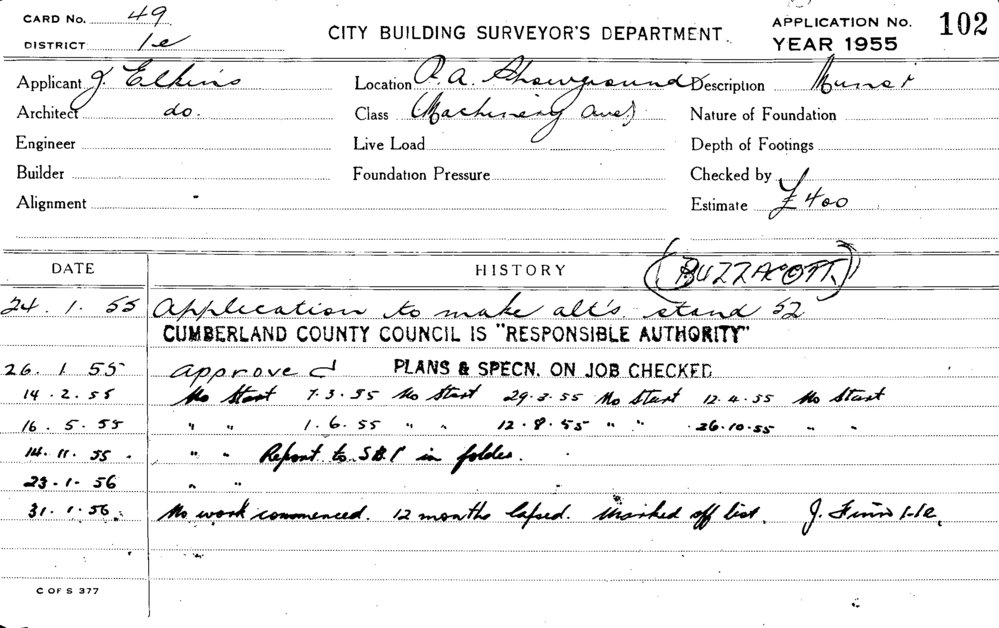 CARD No. 49
DISTRICT 1e
CITY BUILDING SURVEYOR'S DEPARTMENT.
APPLICATION No. 102
YEAR 1955
Applicant J. Elkins Location R.A. Showground Description
Architect do. Class (Machinery Ave) Nature of Foundation
Engineer Live Load Depth of Footings
Builder Foundation Pressure Checked by
Alignment Estimate £400
DATE HISTORY (BUZZACOTT)
24.1.55 Application to make alt's stand 52
CUMBERLAND COUNTY COUNCIL IS "RESPONSIBLE AUTHORITY"
26.1.55 approved PLANS & SPECN. ON JOB CHECKED
14.2.55 No Start 7.3.55 No Start 29.3.55 No Start 12.4.55 No Start
16.5.55 " " 1.6.55 " " 12.8.55 " " 26.10.55 " "
14.11.55. " " Report to in folder.
23.1.56 " "
31.1.56. No work commenced. 12 months lapsed. Marked off list. J.
C OF S 377